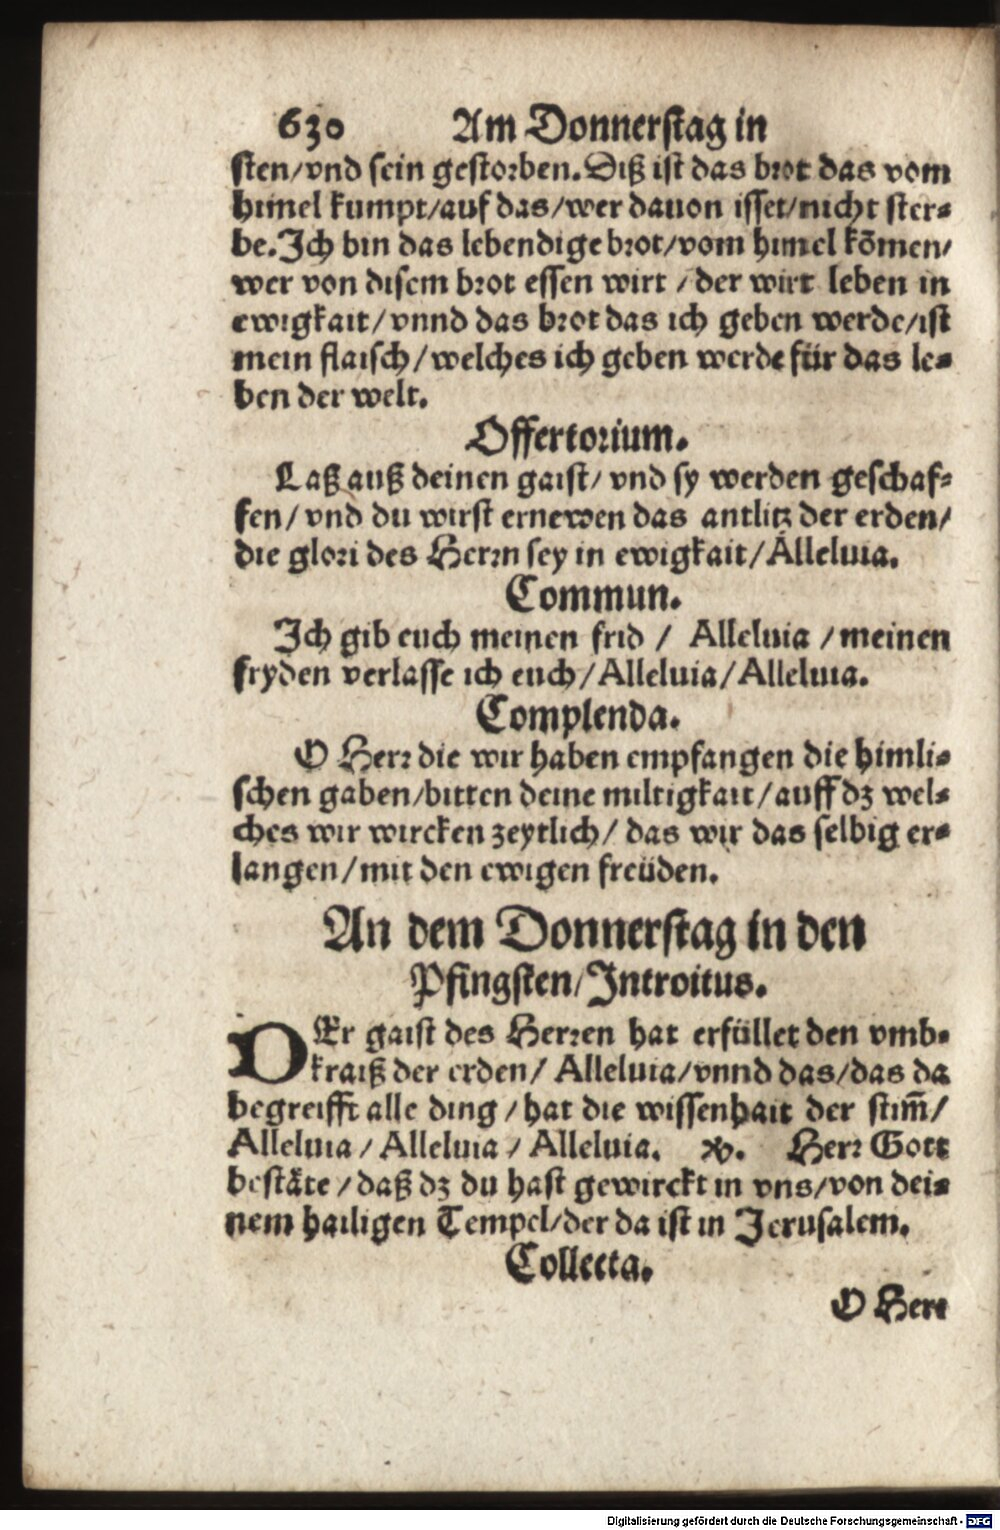 630 Am Donnerstag in
sten/vnd sein gestorben. Diß ist das brot das vom
himel kumpt/auf das/wer dauon isset/nicht ster-
be. Ich bin das lebendige brot/vom himel kõmen/
wer von disem brot essen wirt / der wirt leben in
ewigkait/vnnd das brot das ich geben werde/ist
mein flaisch/welches ich geben werde für das le-
ben der welt.
Offertorium.
Laß auß deinen gaist/ vnd sy werden geschaf-
fen/vnd du wirst ernewen das antlitz der erden/
die glori des Herrn sey in ewigkait/Alleluia.
Commun.
Ich gib euch meinen frid / Alleluia /meinen
fryden verlasse ich euch/Alleluia/Alleluia.
Complenda.
O Herr die wir haben empfangen die himli-
schen gaben/bitten deine miltigkait/auff dz wel-
ches wir wircken zeytlich/ das wir das selbig er-
langen/mit den ewigen freüden.
An dem Donnerstag in den
Pfingsten/Introitus.
DEr gaist des Herren hat erfüllet den vmb-
kraiß der erden/ Alleluia/vnnd das/das da
begreifft alle ding /hat die wissenhait der stim̃/
Alleluia/Alleluia/Alleluia. ℣. Herr Gott
bestäte/daß dz du hast gewirckt in vns/von dei-
nem hailigen Tempel/der da ist in Jerusalem.
Collecta.
O Herr
Digitalisierung gefördert durch die Deutsche Forschungsgemeinschaft - DFG